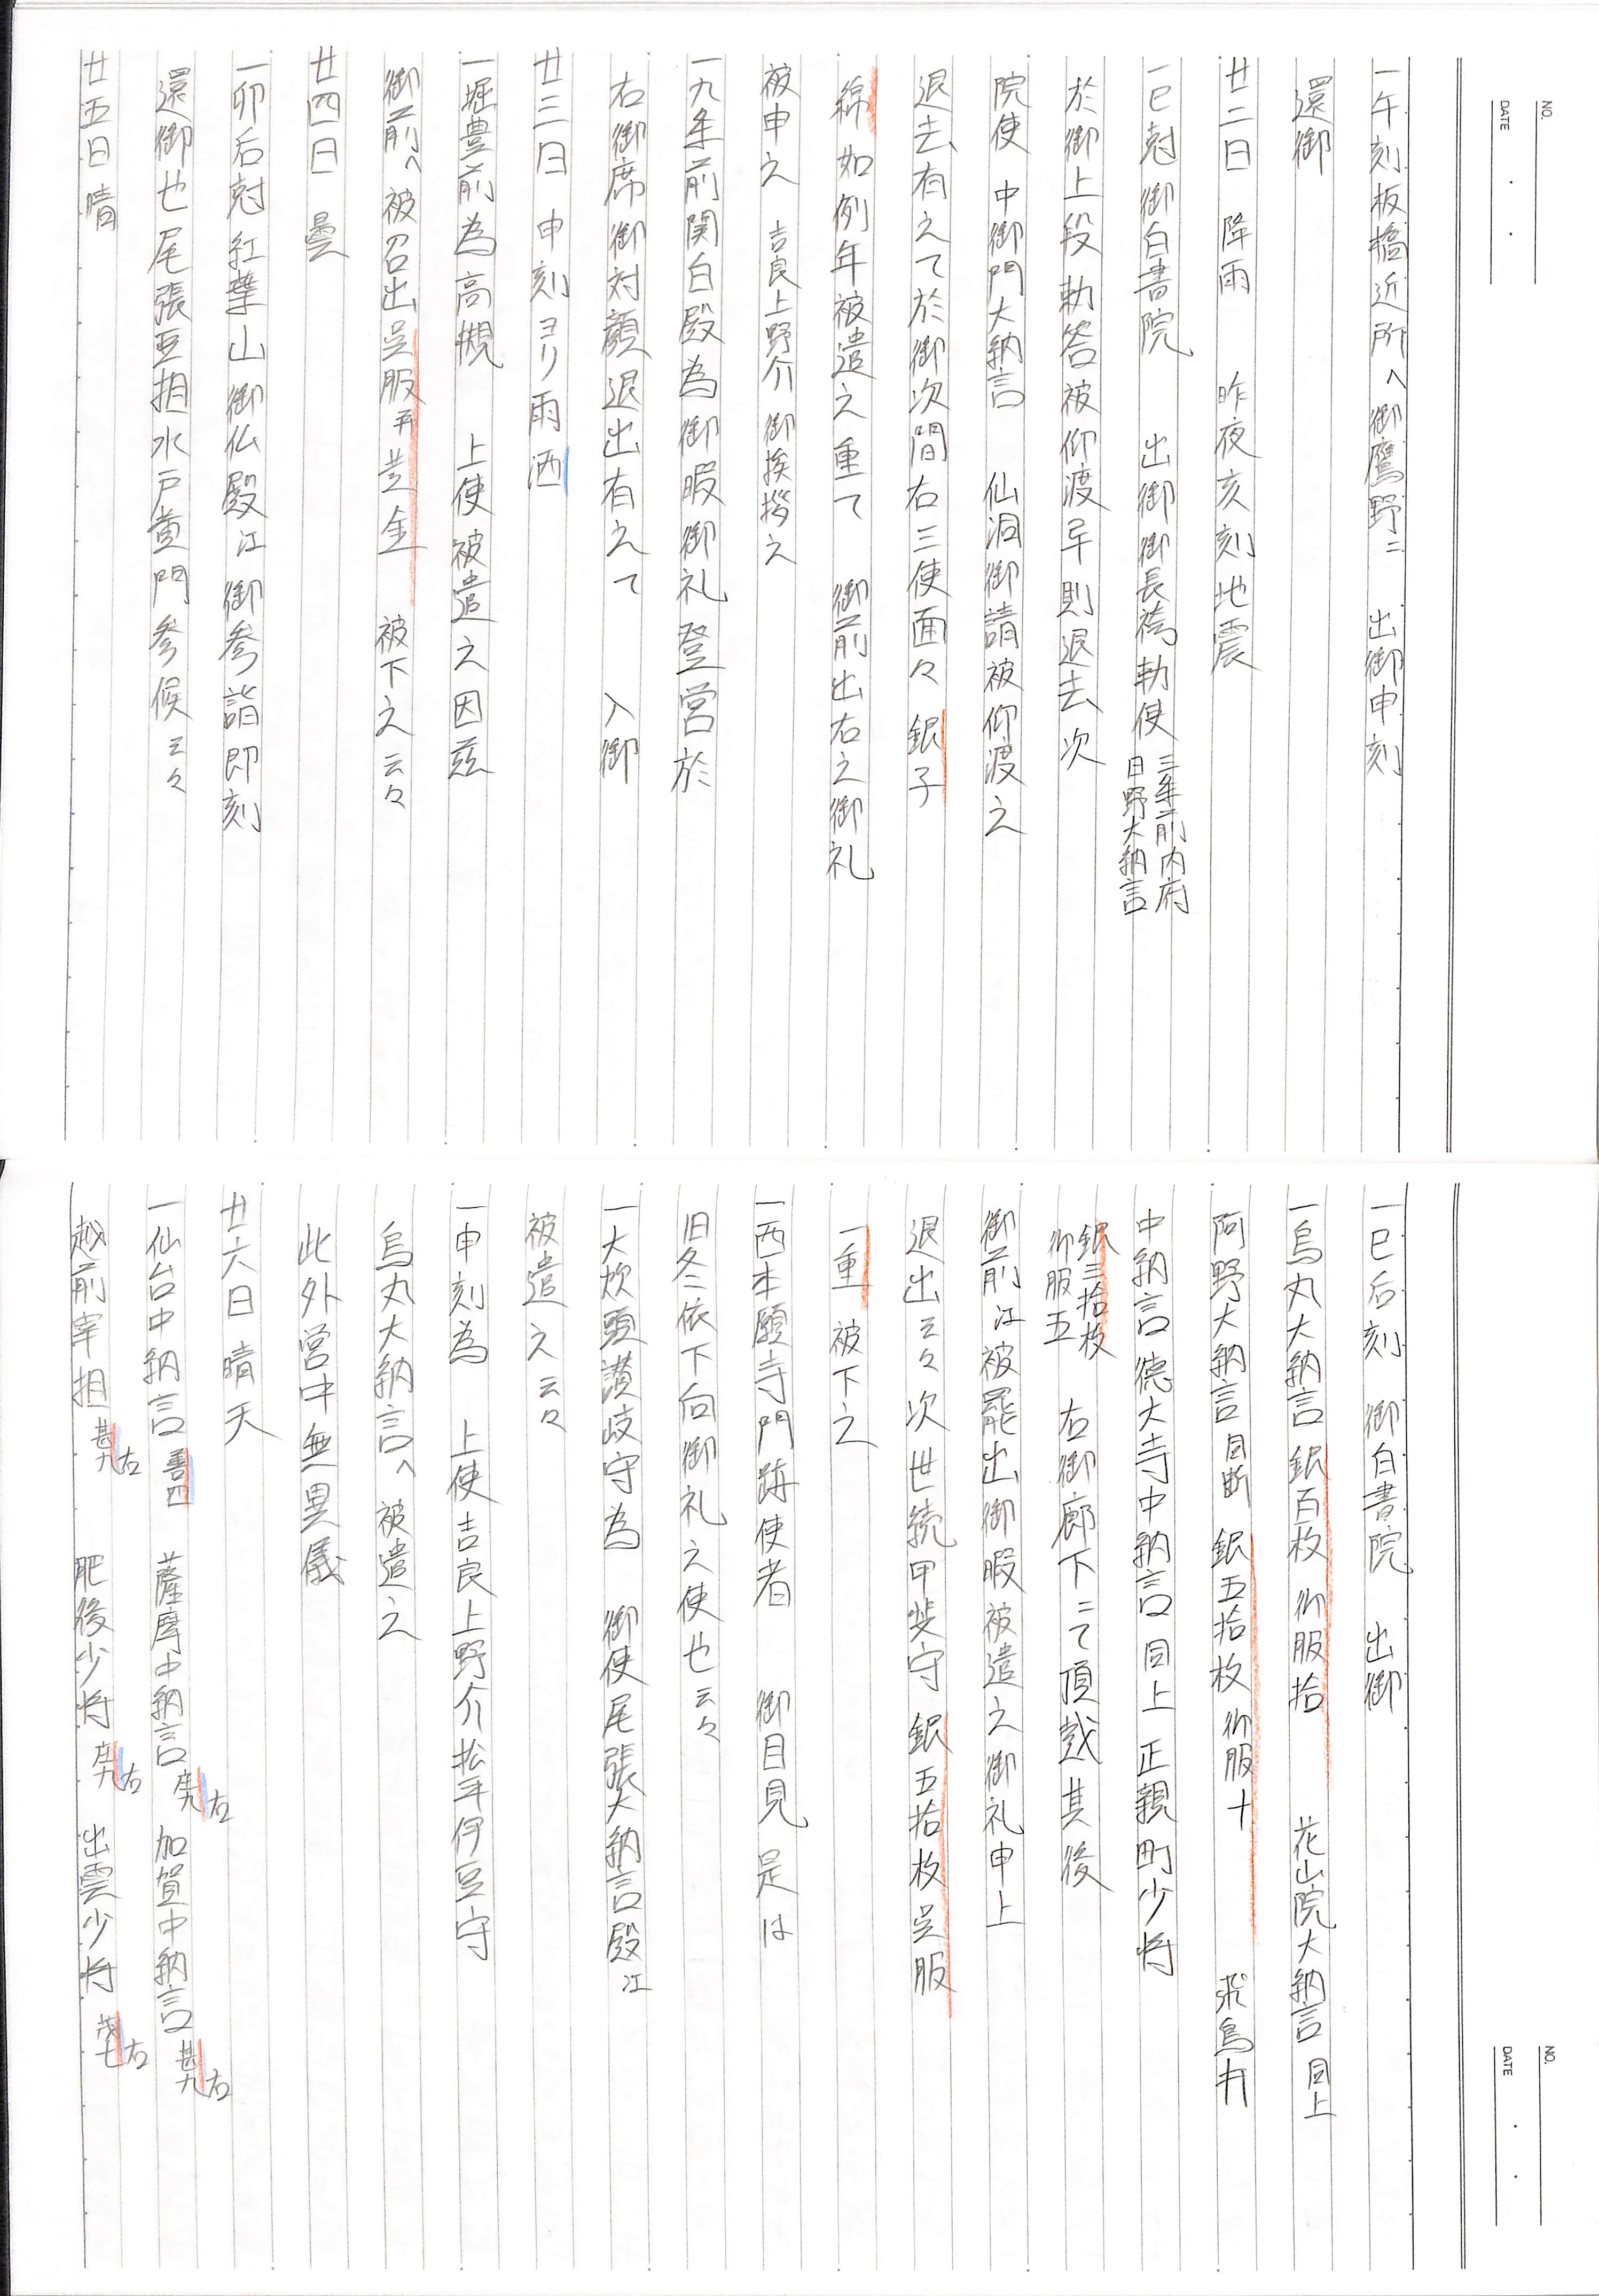 NO.
DATE
一午刻板橋近所へ御鷹野ニ 出御申刻
還御
廿二日 降雨 昨夜亥刻地震
一巳尅 御白書院 出御御長袴勅使 三条前内府 日野大納言
於御上段勅答被仰渡早則退去次
院使 中御門大納言 仙洞御請被仰渡之
退去有之て於御次間右三使面々銀子
綿如例年被遣之重て 御前出右之御礼
被申之 吉良上野介御挨拶之
一九条前関白殿為御暇御礼登営於
右御席御対顔退出有之て 入御
廿三日 申刻ヨリ雨洒
一堀豊前為高槻 上使被遣之因茲
御前へ被召出呉服 金 被下之云々
廿四日 曇
一卯后尅紅葉山御仏殿江御参詣即刻
還御也尾張亜相水戸黄門参候云々
廿五日 晴
NO.
DATE
一巳后刻 御白書院 出御
一烏丸大納言 銀百枚 御服拾 花山院大納言 同上
阿野大納言 同断 銀五拾枚 御服十 飛鳥井
中納言徳大寺中納言 同上 正親町少将
銀三拾枚 御服五 右御廊下ニて頂戴其後
御前江被罷出御暇被遣之御礼申上
退出云々次世続甲斐守 銀五拾枚呉服
一重 被下之
一西本願寺門跡使者 御目見 是は
旧冬ニ依下向御礼之使也云々
一大炊頭讃岐守為 御使尾張大納言殿江
被遣之云々
一申刻為 上使吉良上野介松平伊豆守
烏丸大納言へ被遣之
此外営中無異儀
廿六日 晴天
一仙台中納言 薩摩中納言 右 加賀中納言 右
越前宰相 右 肥後少将 右 出雲少将 右